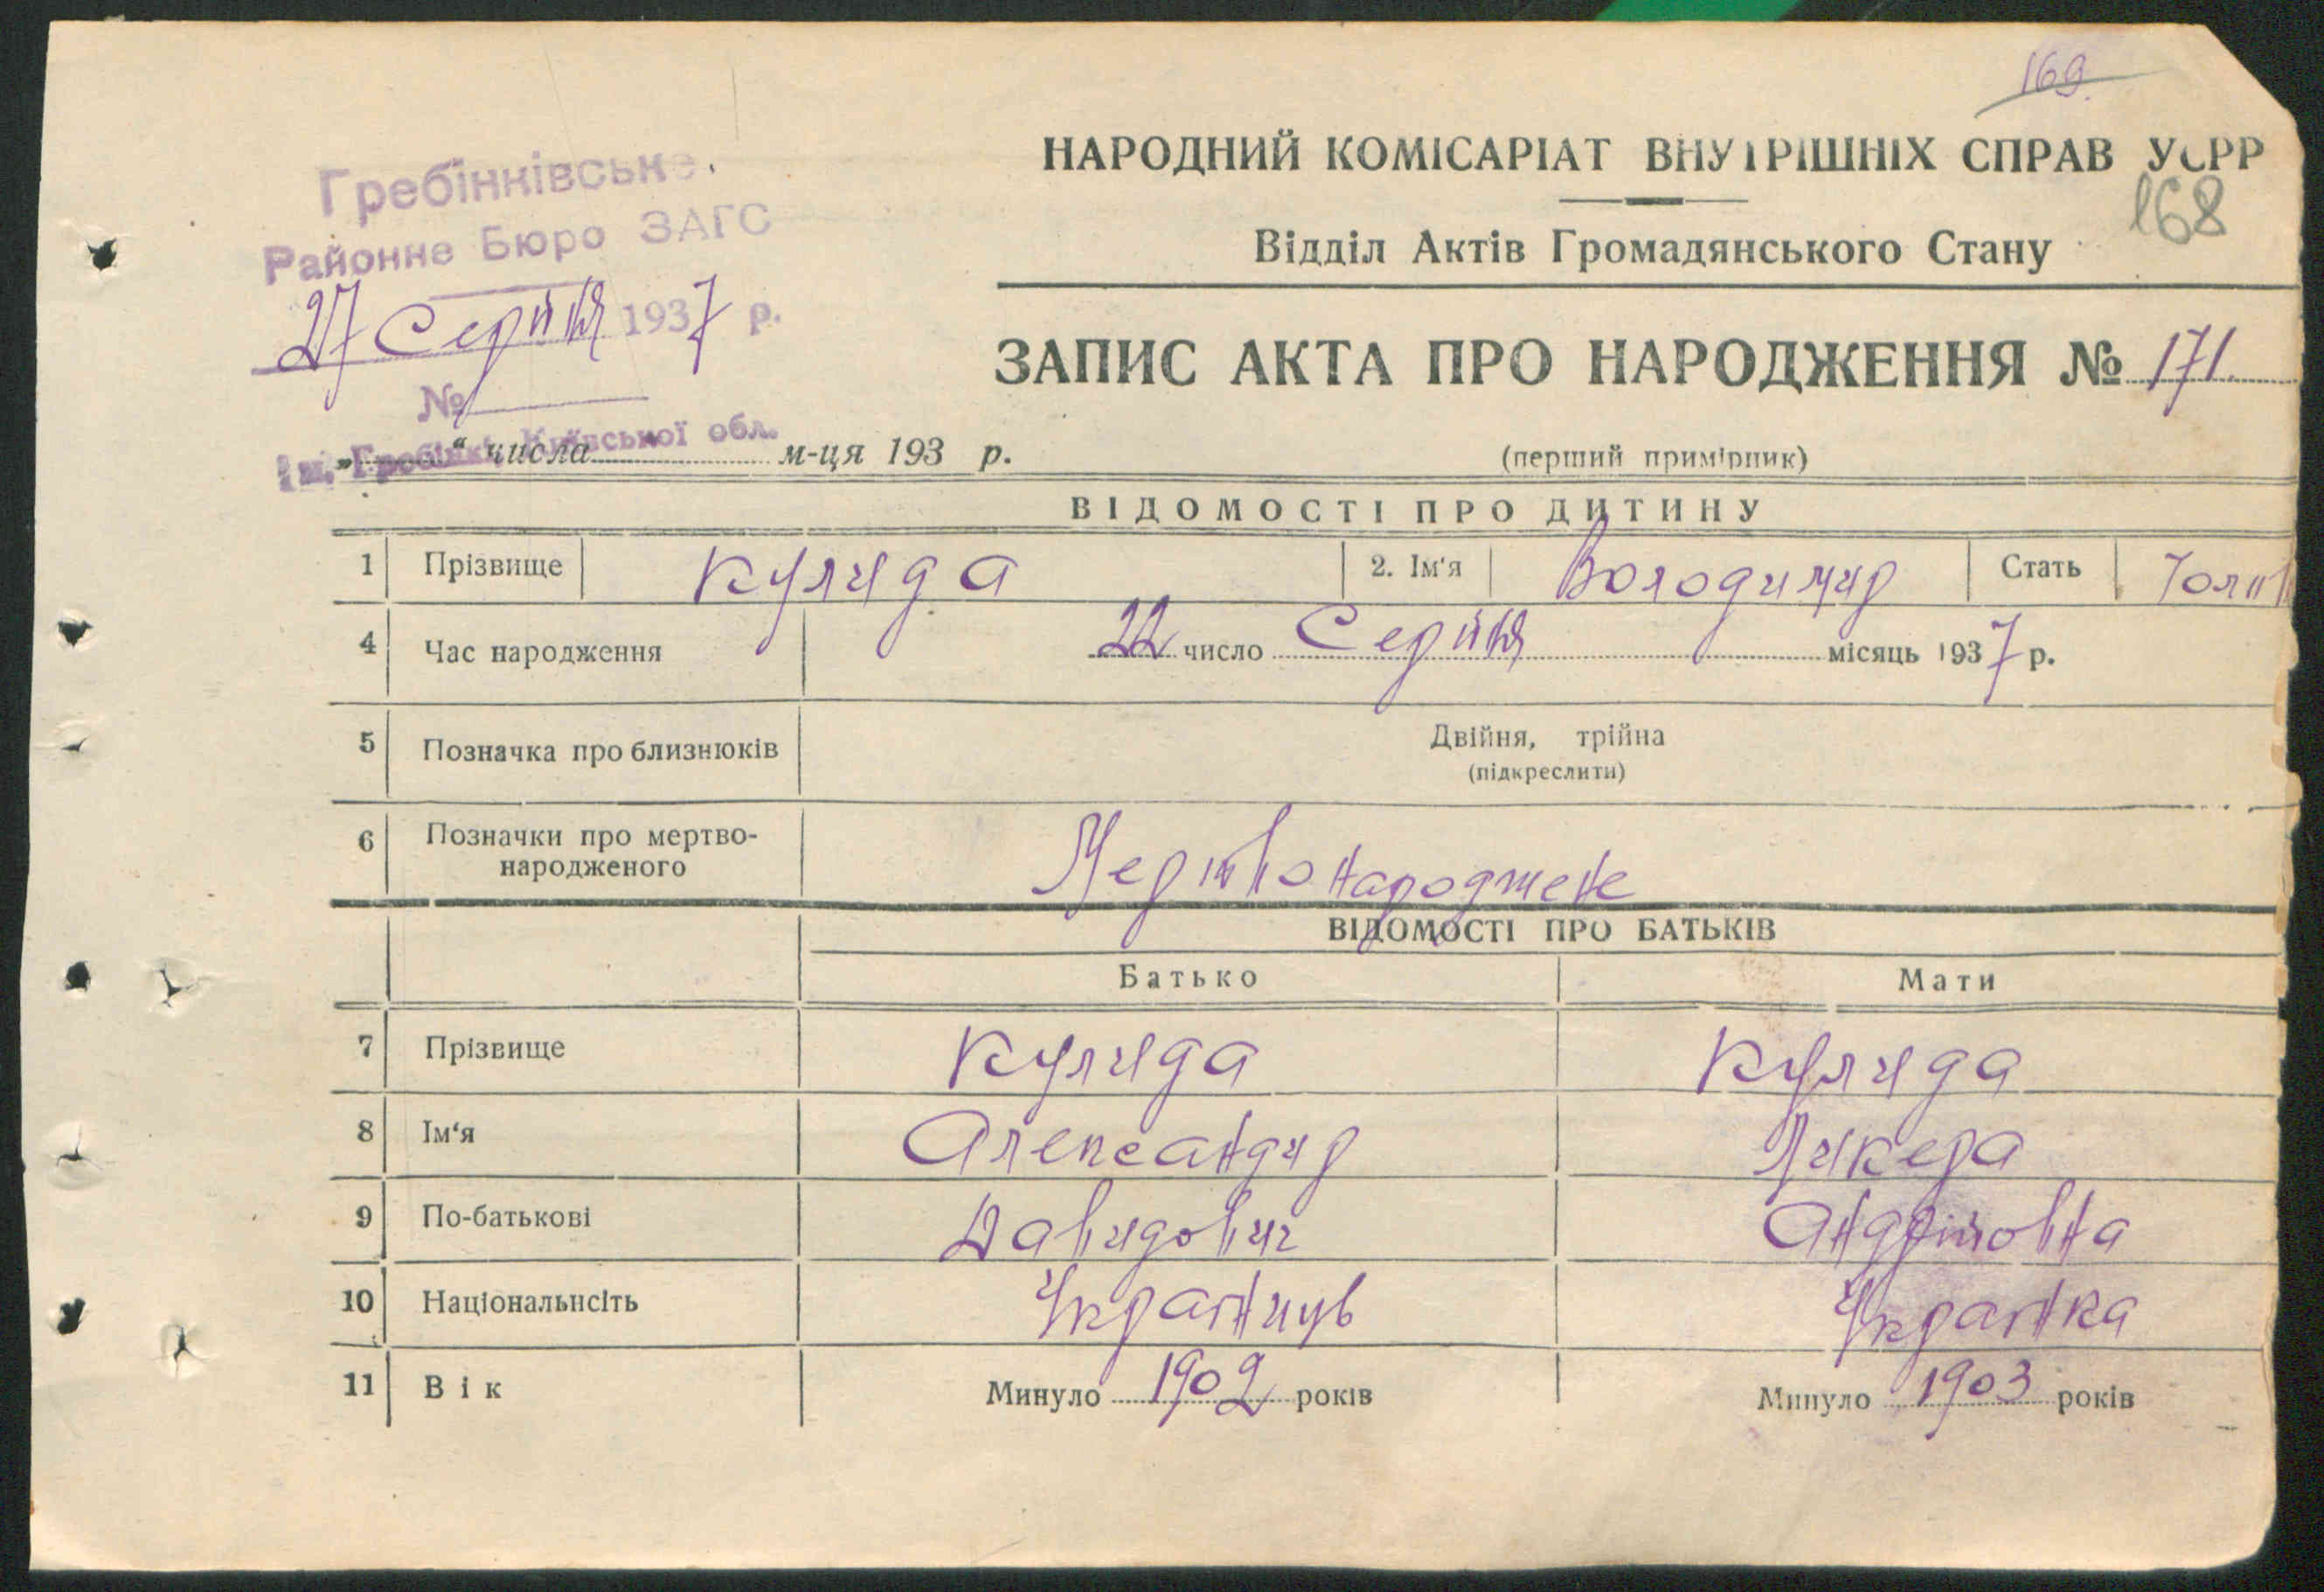 169.
НАРОДНИЙ КОМІСАРІАТ ВНУТРІШНІХ СПРАВ УСРР
168
Гребінківське
Районне Бюро ЗАГС
27 Серпня 1937 р.
№
м. Гребінки Київської обл.
Відділ Актів Громадянського Стану
ЗАПИС АКТА ПРО НАРОДЖЕННЯ № 171.
„ “ числа м-ця 193 р.
(перший примірник)
ВІДОМОСТІ ПРО ДИТИНУ
1 Прізвище Кулида 2. Ім'я Володимир Стать Чолов
4 Час народження 22 число Серпня місяць 1937 р.
5 Позначка про близнюків Двійня, трійна
(підкреслити)
6 Позначки про мертво-
народженого Мертвонароджене
ВІДОМОСТІ ПРО БАТЬКІВ
Батько Мати
7 Прізвище Кулида Кулида
8 Ім'я Александир Ликера
9 По-батькові Давидович Андрійовна
10 Національнсіть Українць Українка
11 Вік Минуло 1902 років Минуло 1903 років